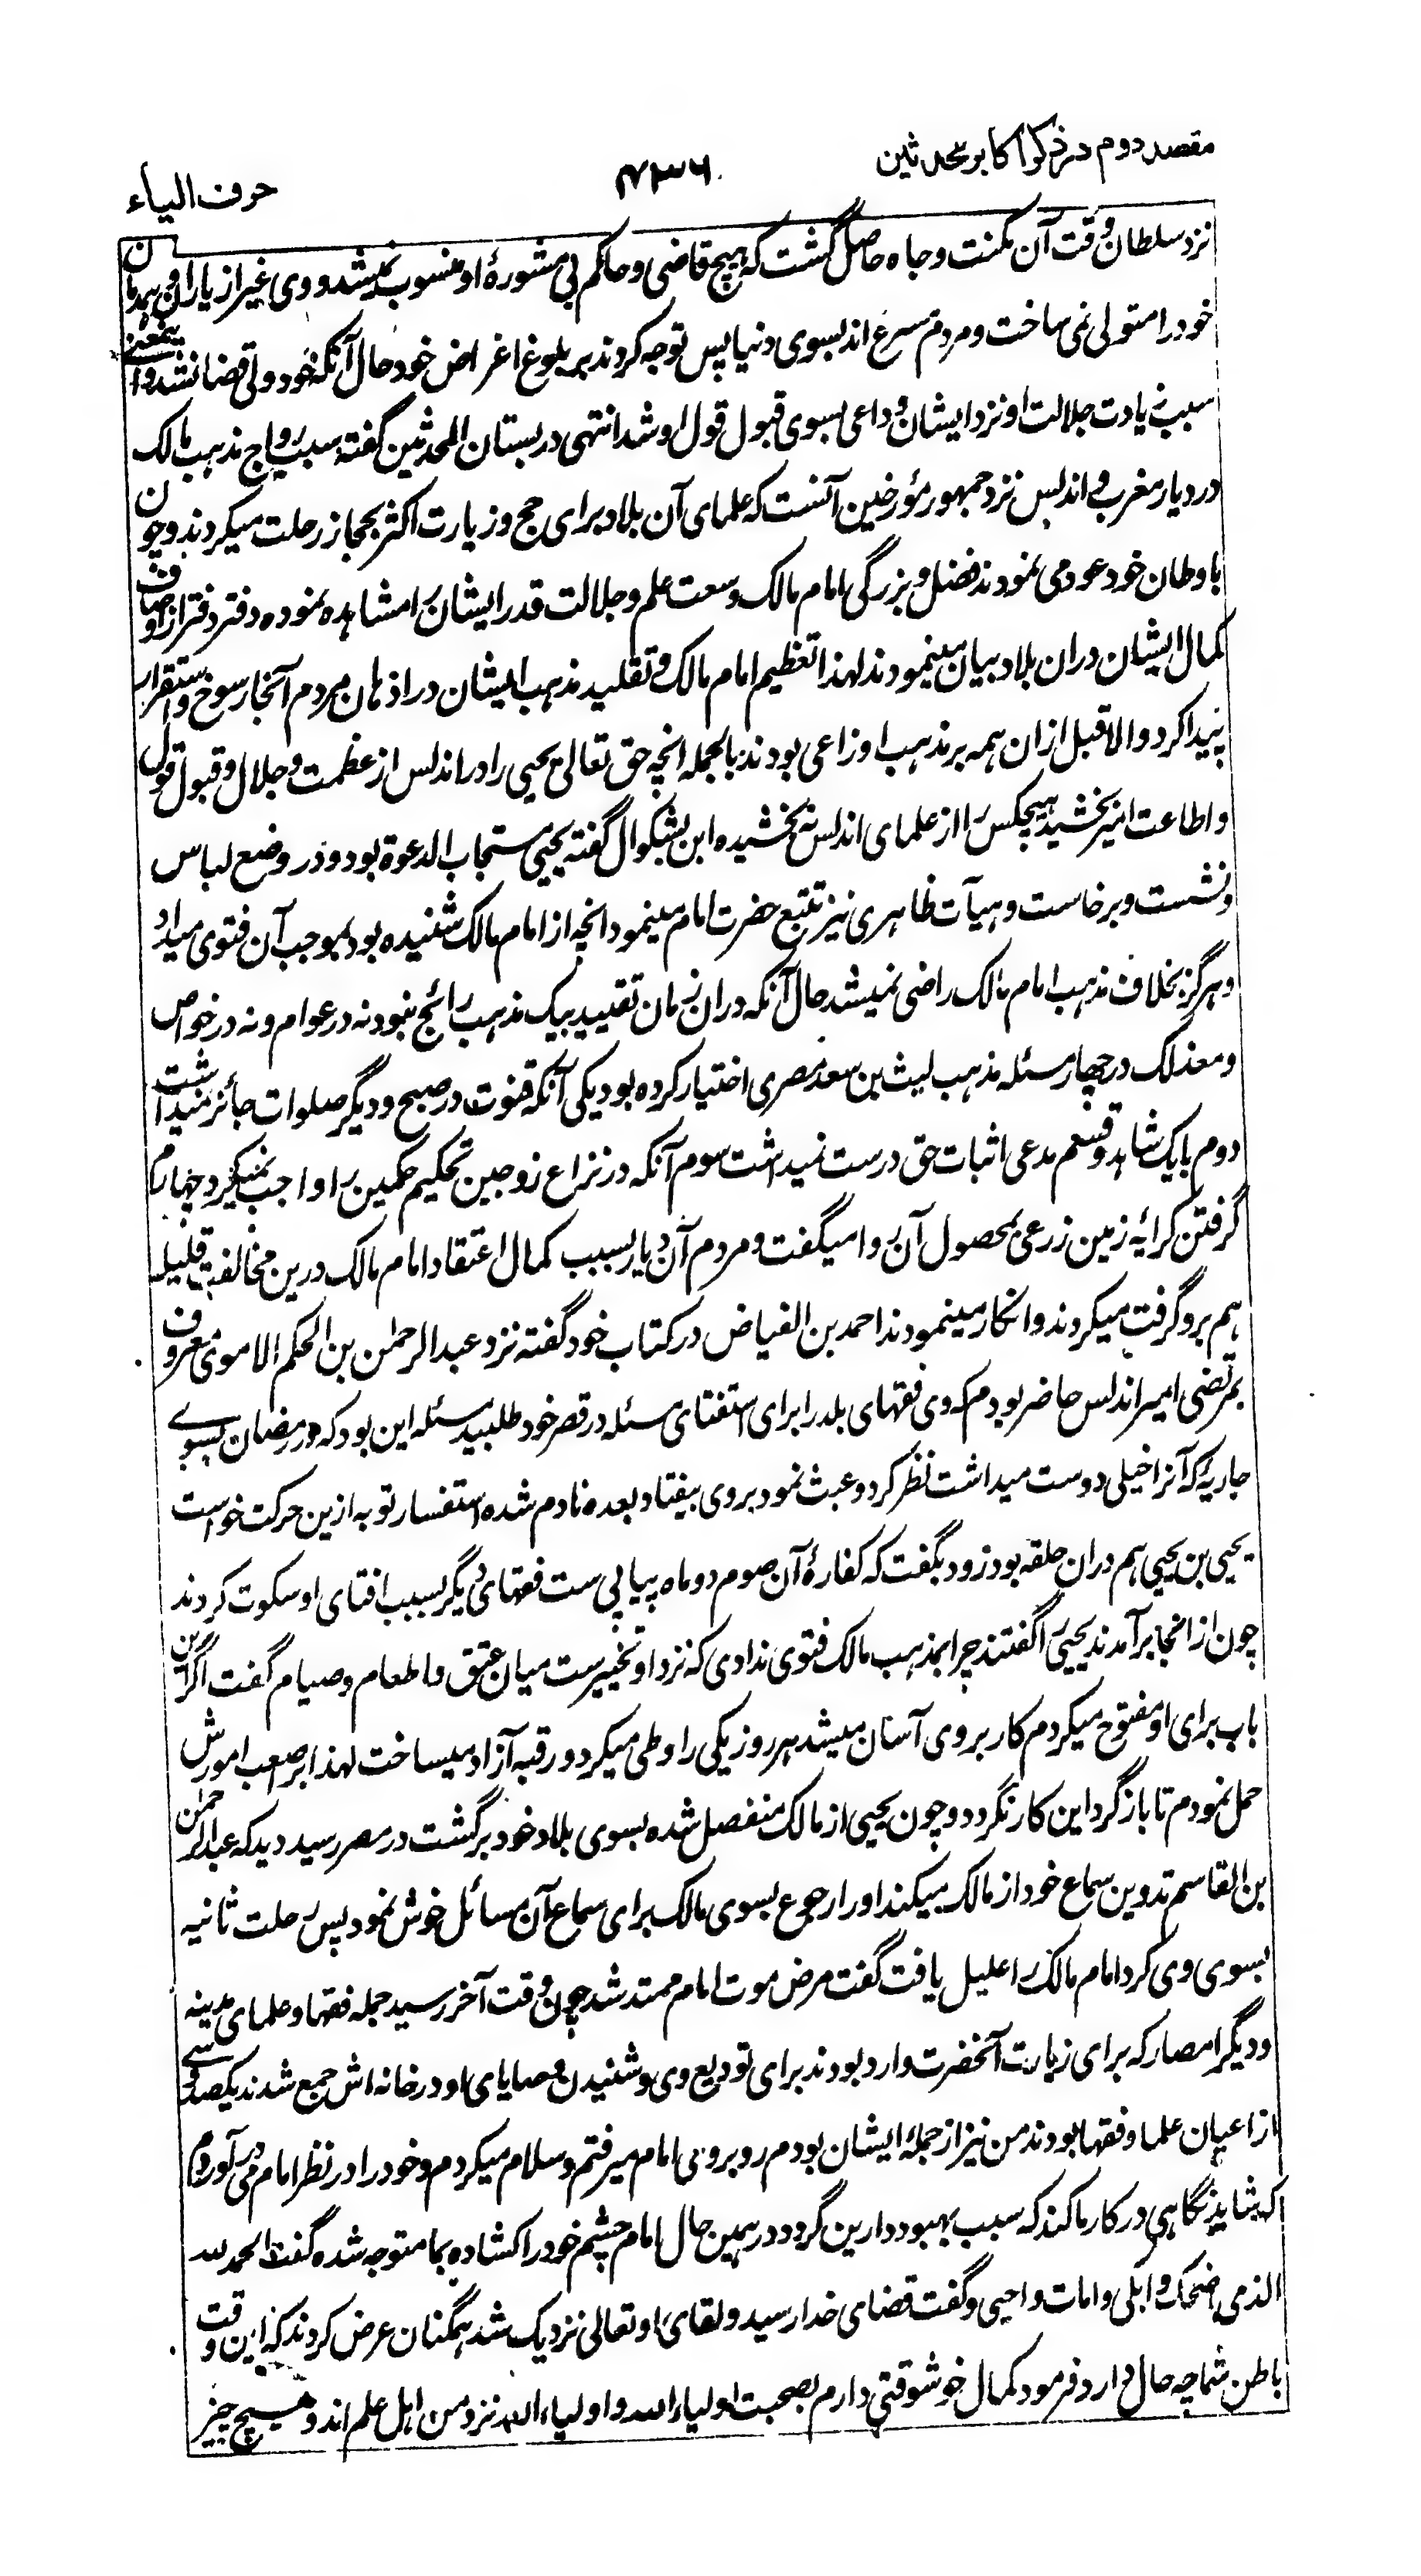 مقصد دوم در ذکر اکابر محدثین
۴۳۶
حرف الیاء
نزد سلطان وقت آن مکنت و جاه حاصل گشت که هیچ قاضی و حاکم بی مشورهٔ او منسوب نمیشد و وی غیر از یاران و همدمان
خود را متولی نمی ساخت و مردم مسرع اند بسوی دنیا پس توجه کردند بر بلوغ اغراض خود حال آنکه خود ولی قضا نشد و اینمعنی
سبب زیادت جلالت او نزد ایشان و داعی بسوی قبول قول او شد انتهی در بستان المحدثین گفته سبب رواج مذهب مالک
در دیار مغرب و اندلس نزد جمهور مؤرخین آنست که علمای آن بلاد برای حج و زیارت اکثر بحجاز رحلت میکردند و چون
باوطان خود عود می نمودند فضل و بزرگی امام مالک و سعت علم و جلالت قدر ایشان را مشاهده نموده دفتر دفتر از اوصاف
کمال ایشان دران بلاد بیان مینمودند لهذا تعظیم امام مالک و تقلید مذهب ایشان در اذهان مردم آنجا رسوخ و استقرار
پیدا کرد والا قبل ازان همه بر مذهب اوزاعی بودند بالجمله انچه حق تعالی یحیی را در اندلس از عظمت و جلال و قبول قول
و اطاعت امیر بخشید هیچکس را از علمای اندلس نه بخشیده ابن بشکوال گفته یحیی مستجاب الدعوة بود و در وضع لباس
و نشست و برخاست و هیآت ظاهری نیز تتبع حضرت امام مینمود انچه از امام مالک شنیده بود بموجب آن فتوی میداد
و هرگز بخلاف مذهب امام مالک راضی نمیشد حال آنکه دران زمان تقیید بیک مذهب رائج نبود نه در عوام و نه در خواص
و معذلک در چهار مسئله مذهب لیث بن سعد مصری اختیار کرده بود یکی آنکه قنوت در صبح و دیگر صلوات جائز نمیداشت
دوم بایک شاهد و قسم مدعی اثبات حق درست نمیداشت سوم آنکه در نزاع زوجین تحکیم حکمین را واجب نمیکرد چهارم
گرفتن کرایه زمین زرعی بمحصول آن روا میگفت و مردم آن دیار بسبب کمال اعتقاد امام مالک درین مخالفت قلیله
هم برو گرفت میکردند و انکار مینمودند احمد بن الفیاض در کتاب خود گفته نزد عبد الرحمٰن بن الحکم الاموی معروف
بمرتضی امیر اندلس حاضر بودم که وی فقهای بلد را برای استفتای مسئله در قصر خود طلبید مسئله این بود که در رمضان بسوی
جاریهٔ که آنرا خیلی دوست میداشت نظر کرد و عبث نمود بر وی بیفتاد بعده نادم شده استفسار توبه ازین حرکت خواست
یحیی بن یحیی هم دران حلقه بود زود بگفت که کفارهٔ آن صوم دو ماه پیاپی ست فقهای دیگر بسبب افتای او سکوت کردند
چون ازانجا برآمدند یحیی را گفتند چرا بمذهب مالک فتوی ندادی که نزد او تخییرست میان عتق و اطعام و صیام گفت اگر این
باب برای او مفتوح میکردم کار بر وی آسان میشد هر روز یکی را وطی میکرد و رقبه آزاد میساخت لهذا بر صعب امورش
حمل نمودم تا بازگرد این کار نگردد و چون یحیی از مالک منفصل شده بسوی بلاد خود برگشت در مصر رسید دید که عبد الرحمٰن
بن القاسم تدوین سماع خود از مالک میکند او را رجوع بسوی مالک برای سماع آن مسائل خوش نمود پس رحلت ثانیه
بسوی وی کرد امام مالک را علیل یافت گفت مرض موت امام ممتد شد چون وقت آخر رسید جمله فقها و علمای مدینه
و دیگر امصار که برای زیارت آنحضرت وارد بودند برای تودیع وی و شنیدن وصایای او در خانه اش جمع شدند یکصد و سی
از اعیان علما و فقها بودند من نیز از جمله ایشان بودم روبروی امام میرفتم و سلام میکردم و خود را در نظر امام می در آوردم
که شاید نگاهی در کار ما کند که سبب بهبود دارین گردد درهمین حال امام چشم خود را کشاده بما متوجه شده گفت الحمد لله
الذی اضحک و ابکی و امات و احیی و گفت قضای خدا رسید و لقای او تعالی نزدیک شد همگنان عرض کردند که این وقت
باطن شما چه حال دارد فرمود کمال خوشوقتی دارم بصحبت اولیاء الله و اولیاء الله نزد من اهل علم اند و هیچ چیز